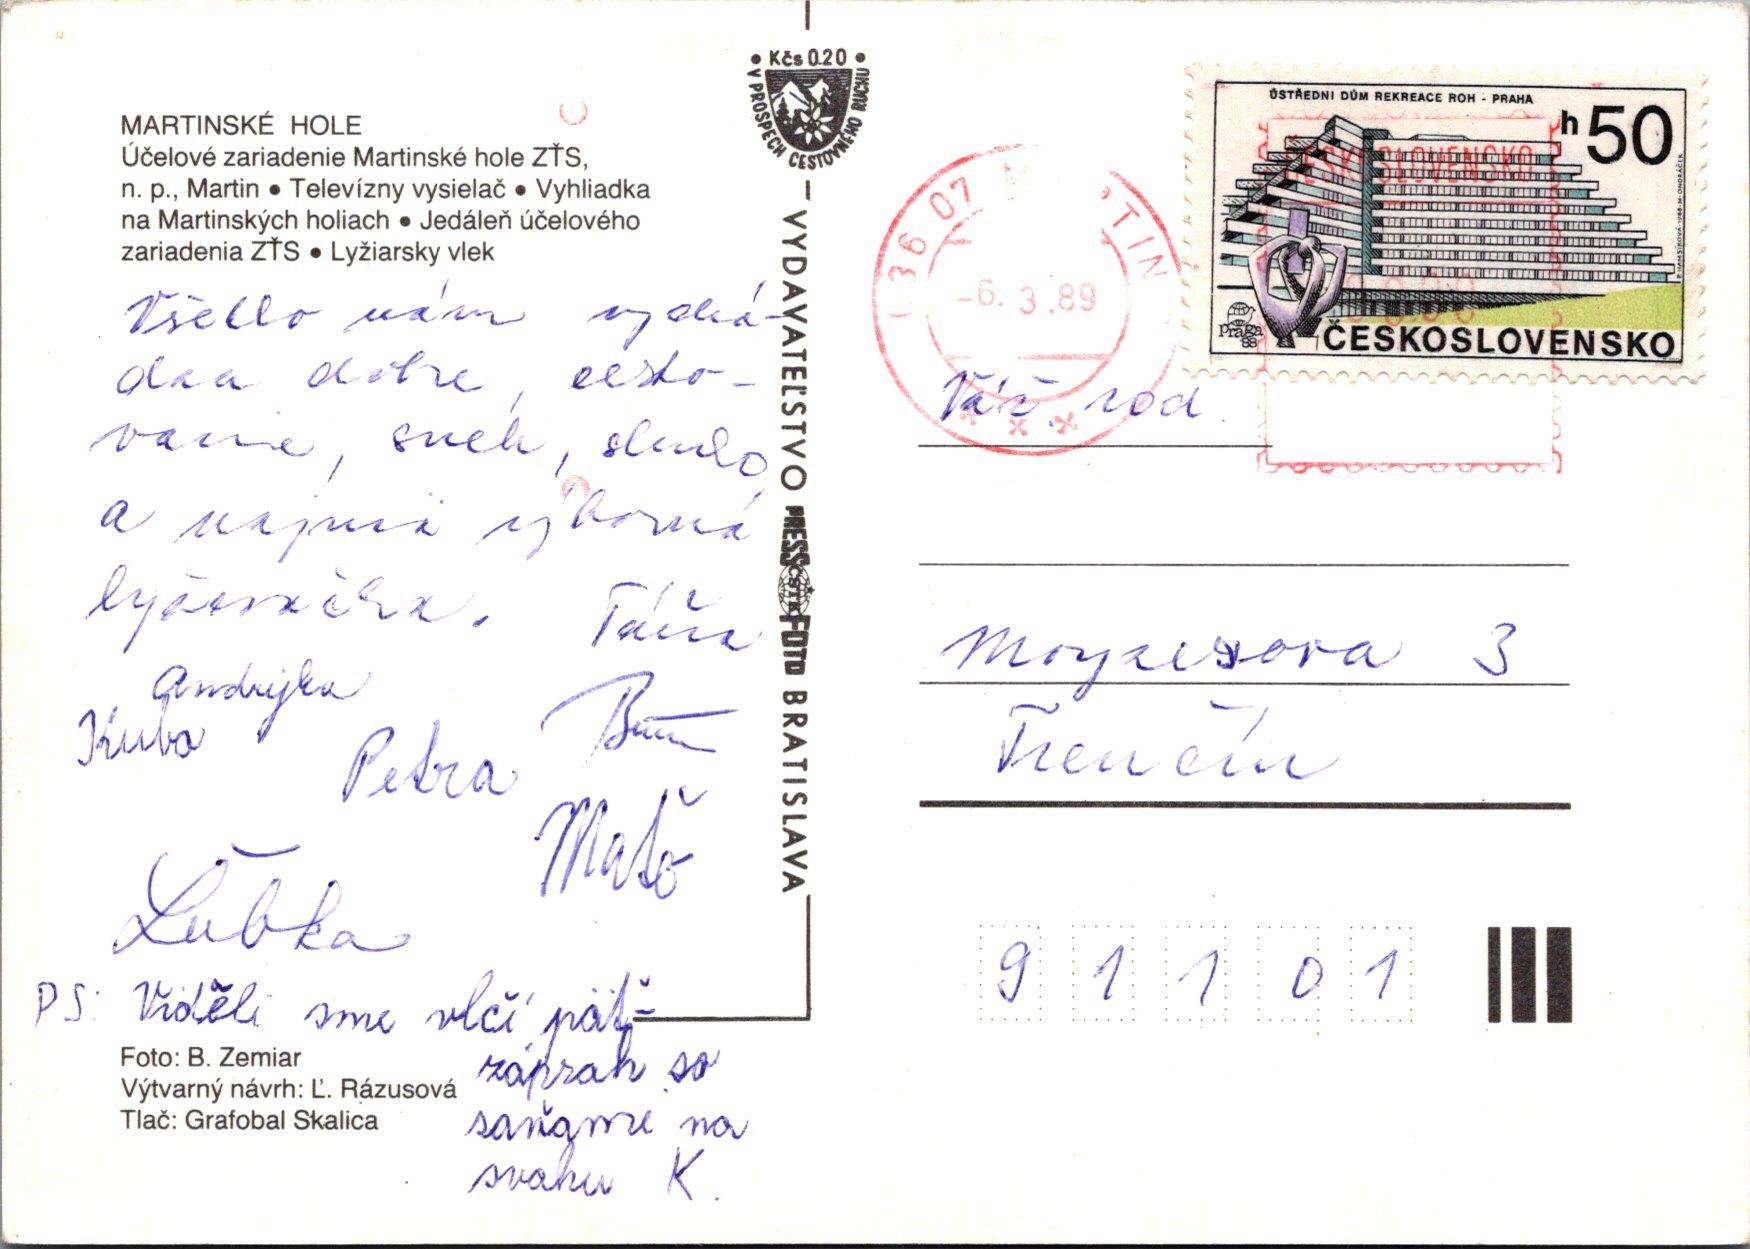 MARTINSKÉ HOLE
Účelové zariadenie Martinské hole ZŤS,
n. p., Martin ● Televízny vysielač ● Vyhliadka
na Martinských holiach ● Jedáleň účelového
zariadenia ZŤS ● Lyžiarsky vlek
Všetko nám vychá-
dza dobre, cesto-
vanie, sneh, slnko,
a najmä výborná
lyžovačka.
Táňa
Andrejka
Kuba
Petra
Maťo
Ľubka
PS: Viděli sme vlčí päť-
záprah so
saňame na
svahu K.
Foto: B. Zemiar
Výtvarný návrh: Ľ. Rázusová
Tlač: Grafobal Skalica
• Kčs 0.20 •
V PROSPECH CESTOVNÉHO RUCHU
VYDAVATEĽSTVO PRESSFOTO BRATISLAVA
ČSTK
036 07 MARTIN
-6. 3.89
ČESKOSLOVENSKO
ÚSTŘEDNÍ DŮM REKREACE ROH - PRAHA
h50
praga
88
ČESKOSLOVENSKO
Váž. rod.
Moyzesova 3
Trenčín
9 1 1 0 1